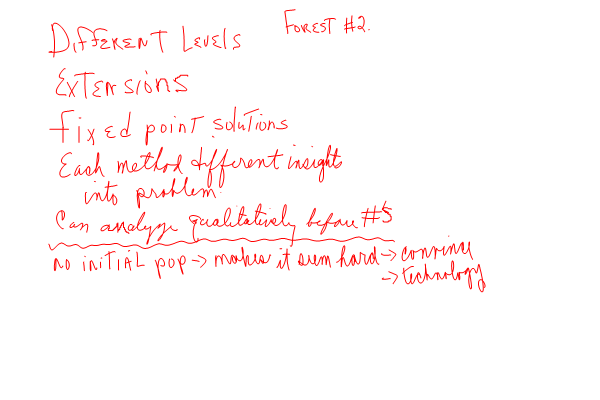 Forest #2.
Different Levels
Extensions
fixed point solutions
Each method different insights
into problem.
Can analyze qualitatively before #'s
no initial pop -> makes it seem hard -> convince
-> technology